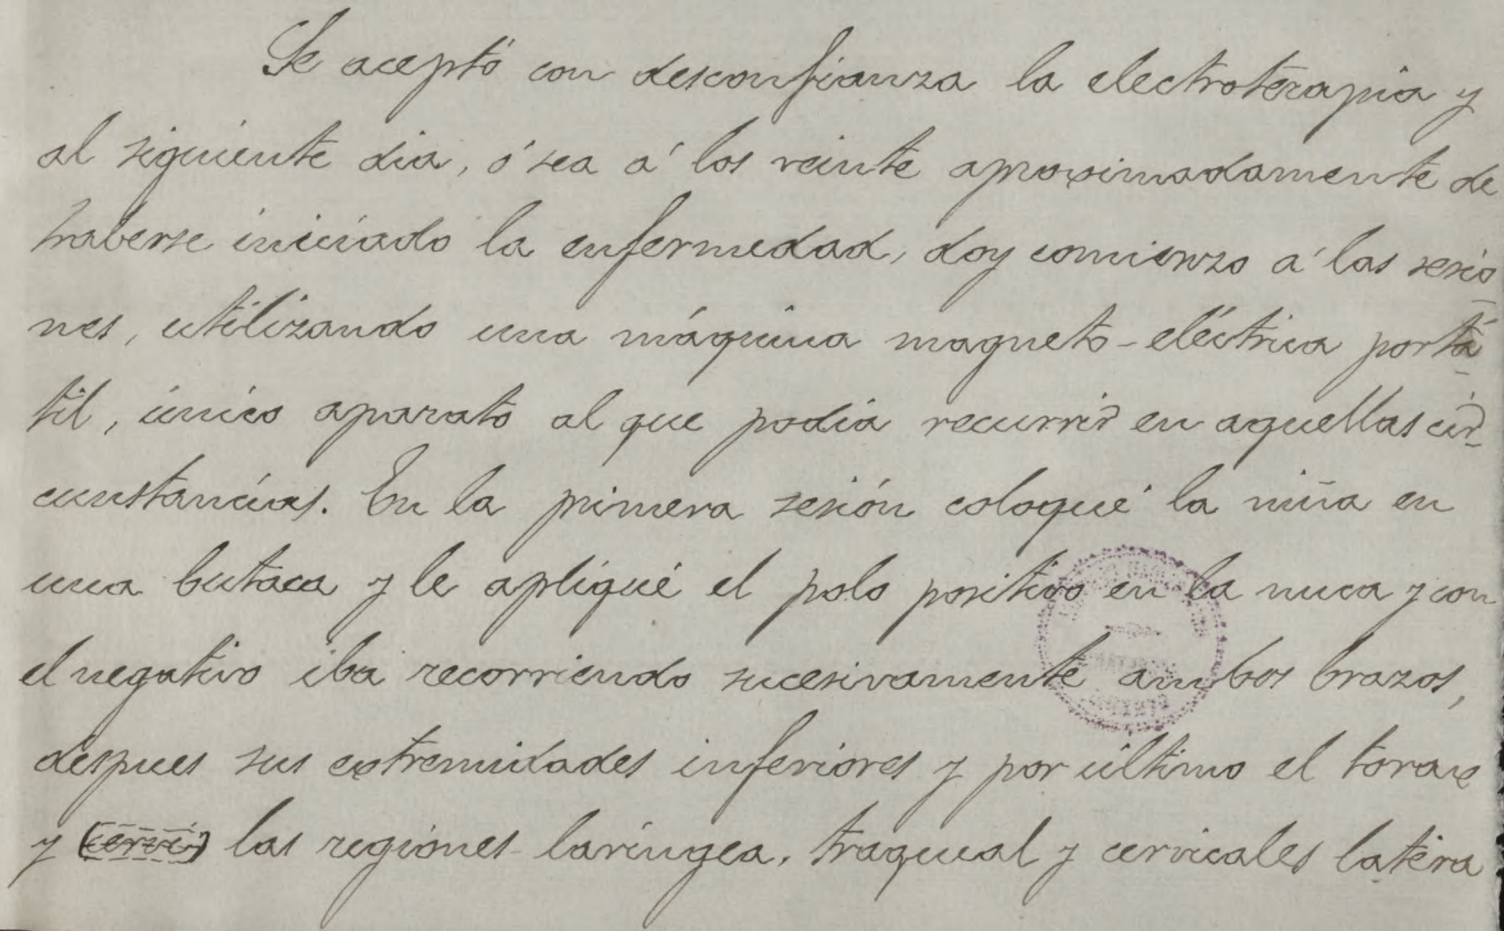 Se aceptó con desconfianza la electroterapia y
al siguiente dia, ó sea á los veinte aproximadamente de
haberse iniciado la enfermedad, doy comienzo á las sesio
nes, utilizando una máquina magneto-eléctrica portá
til, único aparato al que podia recurrir en aquellas cir
cunstancias. En la primera sesión coloqué la niña en
una butaca y le apliqué el polo positivo en la nuca y con
el negativo iba recorriendo sucesivamente ambos brazos,
despues sus extremidades inferiores y por último el torax
y (cervi) las regiones laringea, traqueal y cervicales latera